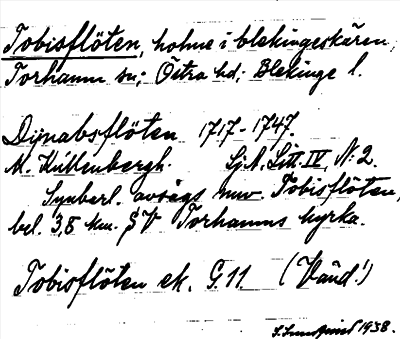 Tobisflöten, holme i blekingeskären,
Torhamn sn; Östra hd; Blekinge l.
Dynabsflöten 1717-1747.
M. Kühlenbergh. Sj.A. Litt. IV, N: 2.
Synberl. avsågs nuv. Tobisflöten,
bel. 3,8 km. SV Torhamns kyrka.
Tobisflöten ek. G.11 (Vänd!)
1938.